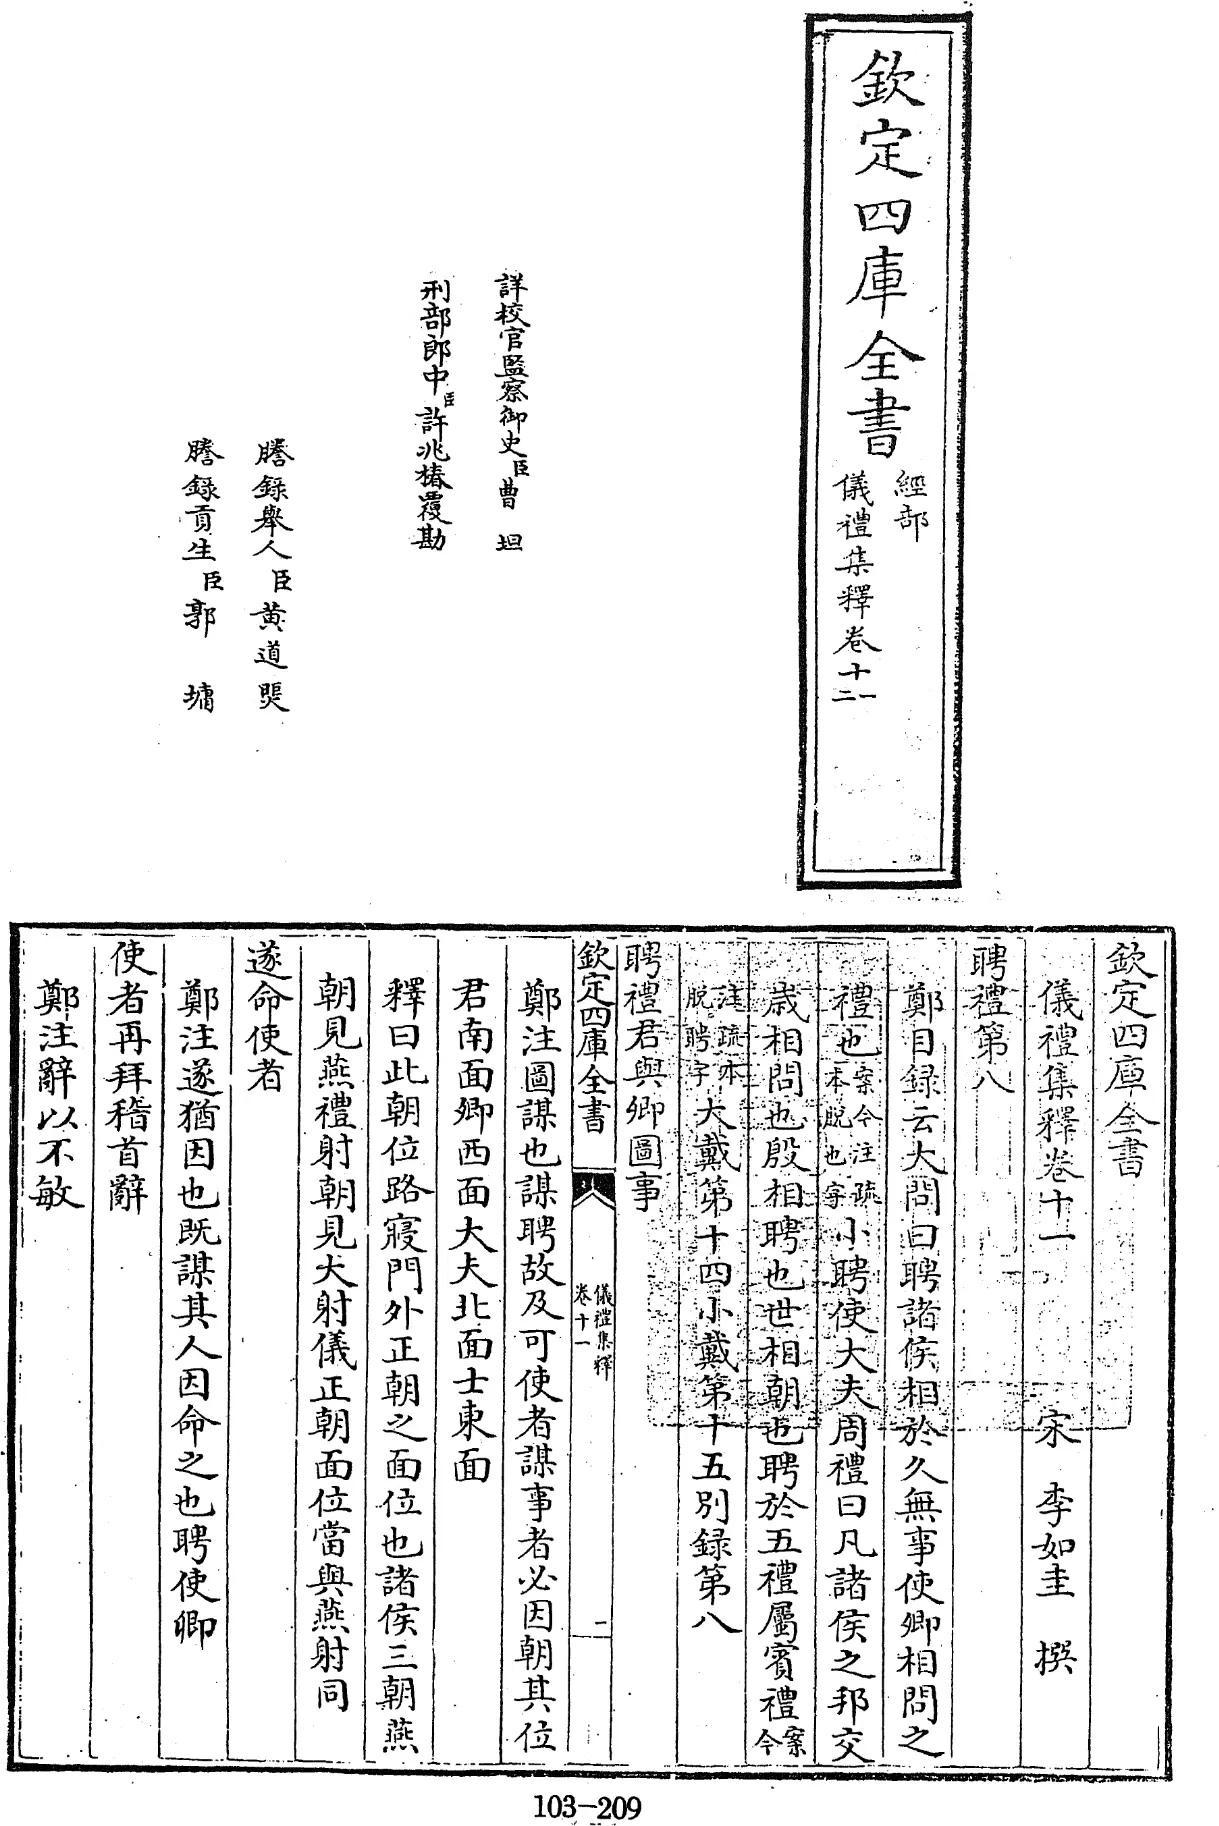 欽定四庫全書
經部
儀禮集釋卷十一
二
詳校官監察御史臣曹坦
刑部郎中臣許兆椿覆勘
謄錄舉人臣黃道煚
謄錄貢生臣郭墉
欽定四庫全書
儀禮集釋卷十一
宋 李如圭 撰
聘禮第八
鄭目録云大問曰聘諸侯相於久無事使卿相問之
禮也案今注疏本脫也字小聘使大夫周禮曰凡諸侯之邦交
歲相問也殷相聘也世相朝也聘於五禮屬賓禮案今
注疏本脫聘字大戴第十四小戴第十五別録第八
聘禮君與卿圖事
欽定四庫全書
儀禮集釋
卷十一
一
鄭注圖謀也謀聘故及可使者謀事者必因朝其位
君南面卿西面大夫北面士東面
釋曰此朝位路寢門外正朝之面位也諸侯三朝燕
朝見燕禮射朝見大射儀正朝面位當與燕射同
遂命使者
鄭注遂猶因也既謀其人因命之也聘使卿
使者再拜稽首辭
鄭注辭以不敏
103-209